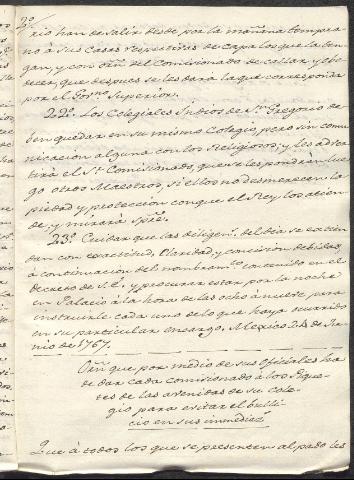 20/
rio han de salir desde por la mañana tempra-
no á sus Casas respectivas de Capa los que la ten-
gan, y con orñ del Comisionado de callar, y obe-
decer, que despues se les dará la que corresponda
por el Govno. Superior.
22a. Los Colegiales Indios de Sn. Gregorio de-
ben quedar en su mismo Colegio, pero sin comu-
nicacion alguna con los Religiosos, y les adver-
tirá el Sr. Comisionado, que se les pondrán lue-
go otros Maestros, si ellos no desmerecen la
piedad y proteccion con que el Rey los atien-
de, y mirará spre.
23a. Cuidar que las diligens. del dia se extien-
dan con exactitud, Claridad, y concision debidas,
á continuacion del nombramto. contenido en el
decreto de S.E., y procurar estar por la noche
en Palacio á la hora de las ocho á nueve para
instruirle cada uno de lo que haya ocurrido
en su particular encargo. Mexico 24 de Ju-
nio de 1767.
Orñ que por medio de sus Oficiales ha
de dar cada Comisionado á los Pique-
tes de las avenidas de su cole-
gio para evitar el bulli-
cio en sus inmediacs.
Que á todos los que se presenten al paso les